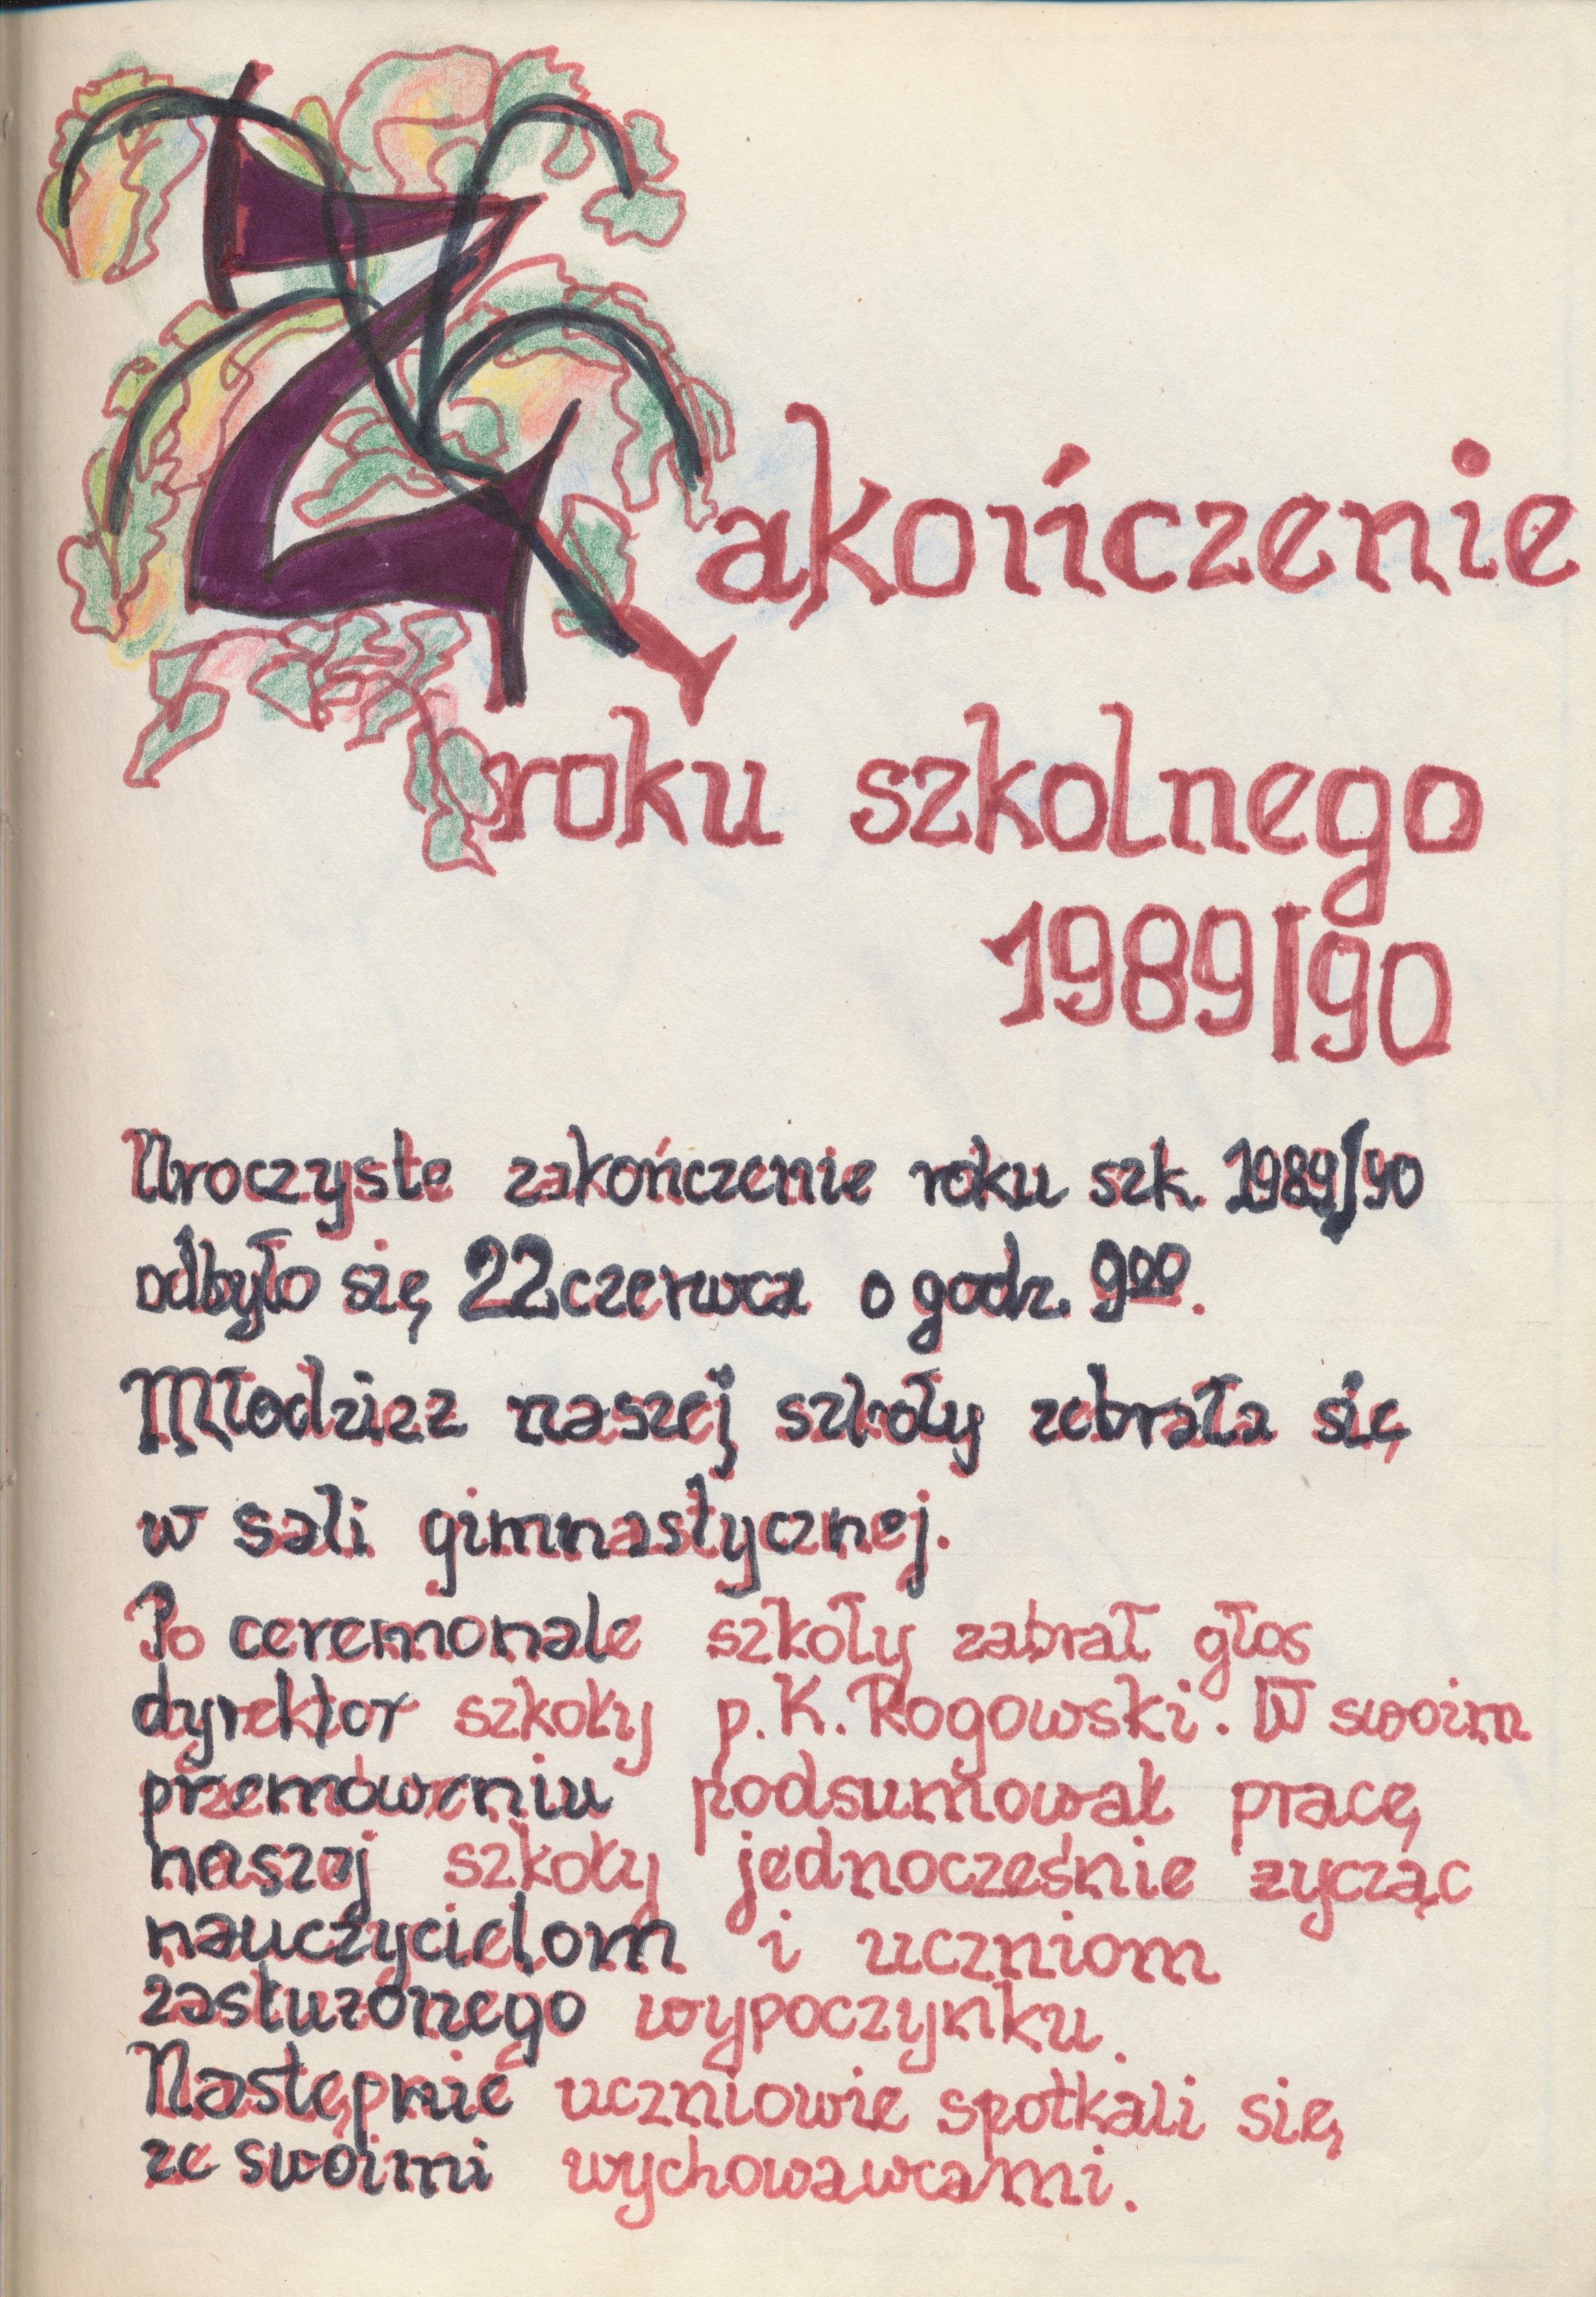 Zakończenie
roku szkolnego
1989/90
Uroczyste zakończenie roku szk. 1989/90
odbyło się 22 czerwca o godz. 9⁰⁰.
Młodzież naszej szkoły zebrała się
w sali gimnastycznej.
Po ceremonale szkoły zabrał głos
dyrektor szkoły p. K. Rogowski. W swoim
przemóweniu podsumował pracę
naszej szkoły jednocześnie życząc
nauczycielom i uczniom
zasłużonego wypoczynku.
Następnie uczniowie spotkali się
ze swoimi wychowawcami.